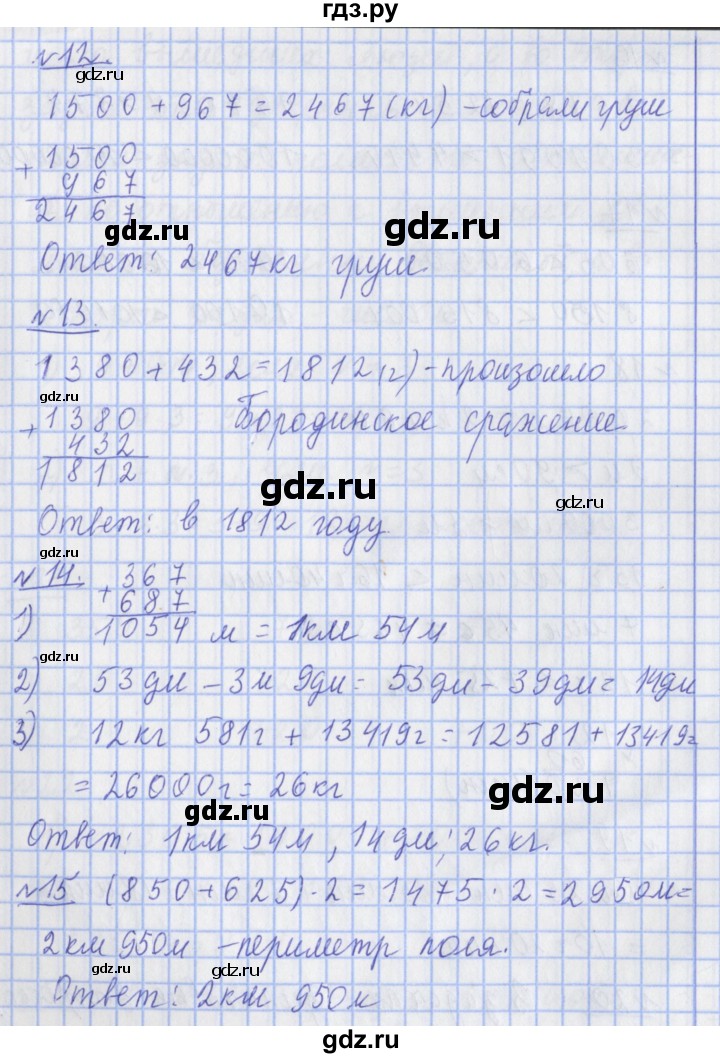 гдз.ру
№12.
gdz.ru
1500 + 967 = 2467 (кг) - собрали груш
+ 1500
967
gdz.ru
2467
gdz.ru
Ответ: 2467 кг груш.
№13.
1380 + 432 = 1812 (г) - произошло
gdz.ru
+ 1380 Бородинское сражение.
432
1812
gdz.ru
gdz.ru
Ответ: в 1812 году
№14. + 367
687
gdz.ru
1) 1054 м = 1км 54м
gdz.ru
2) 53дм - 3м 9дм = 53дм - 39дм = 14дм
3) 12кг 581г + 13419г = 12581 + 13419г
= 26000г = 26кг
gdz.ru
gdz.ru
Ответ: 1км 54м, 14дм; 26кг.
№15 (850 + 625) · 2 = 1475 · 2 = 2950м =
2км 950м - периметр поля.
gdz.ru
gdz.ru
Ответ: 2км 950м
gdz.ru